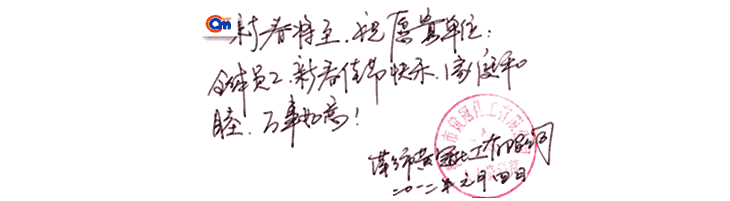 新春将至,祝愿贵单位:
全体员工,新春佳节快乐,家庭和
睦,万事如意!
市黄冠化工有限公司
二〇一二年元月四日